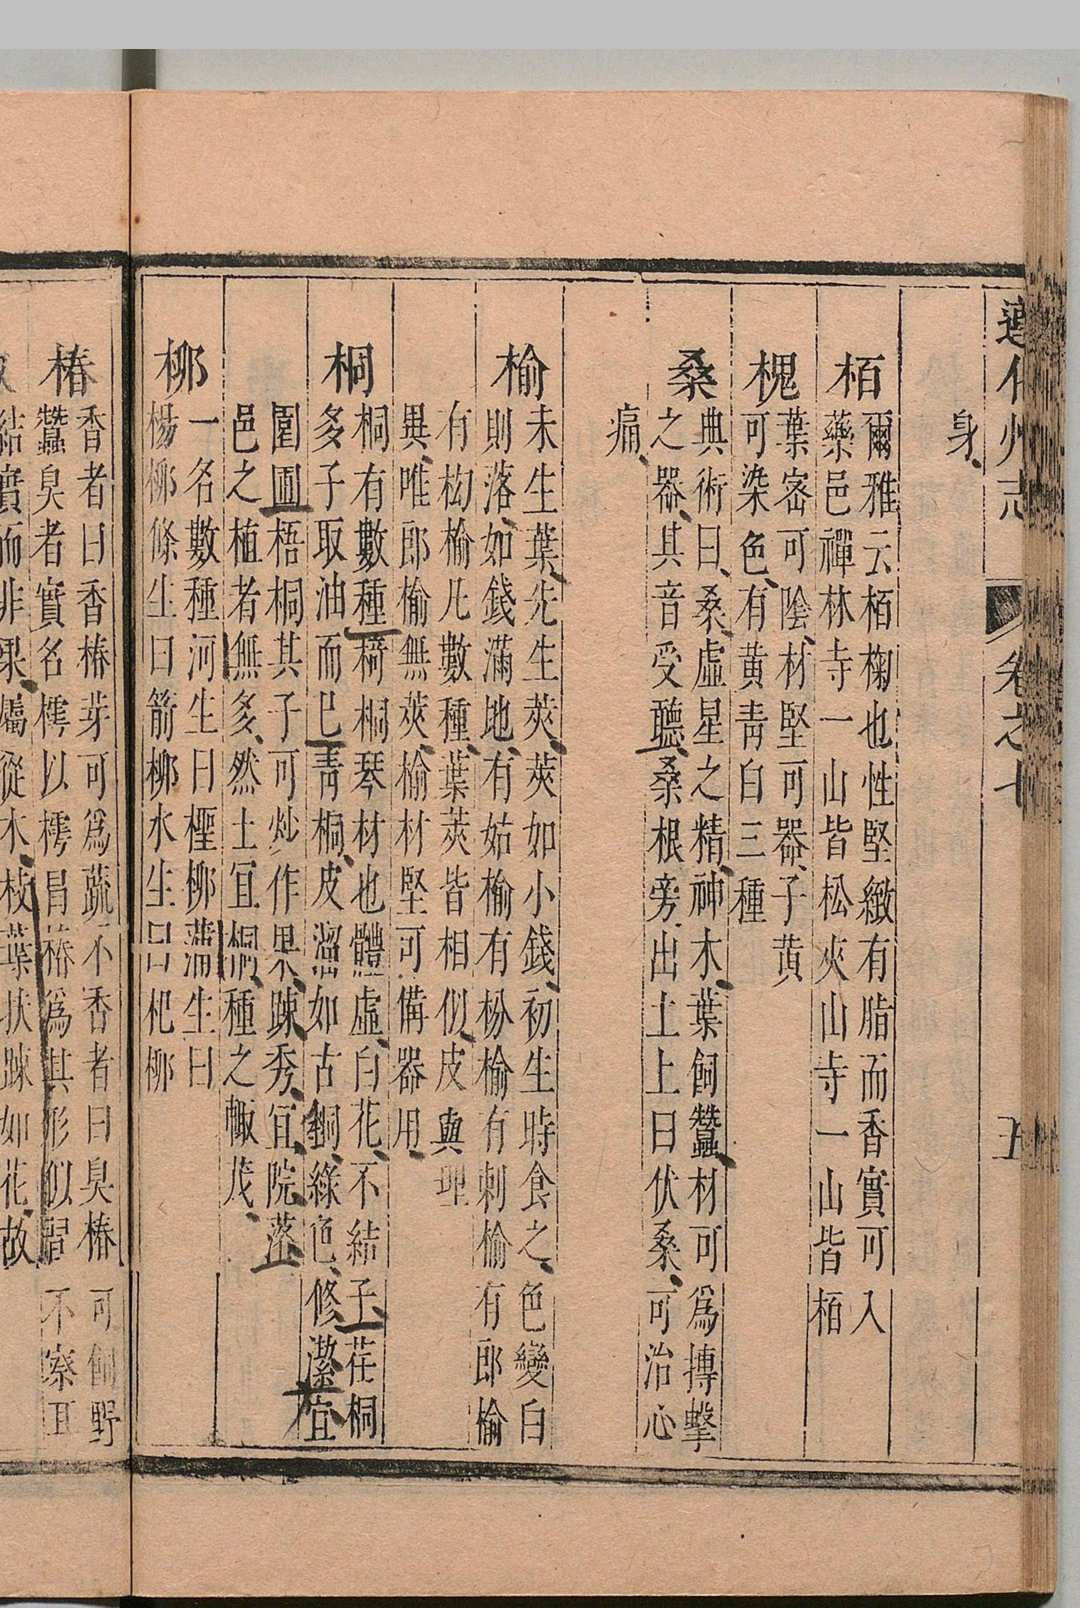 遵化州志
卷之七
五
身
栢
爾雅云栢椈也性堅緻有脂而香實可入
藥邑禪林寺一山皆松夾山寺一山皆栢
槐
葉宻可陰材堅可器子黄
可染色有黄靑白三種
桑
典術曰桑虛星之精神木葉飼蠶材可爲摶擊
之器其音受聽桑根旁出土上曰伏桑可治心
痛
榆
未生葉先生莢莢如小錢初生時食之色變白
則落如錢滿地有姑榆有枌榆有刺榆有郎榆
有枸榆凡數種葉莢皆相似皮與理
異唯郎榆無莢榆材堅可備器用
桐
桐有數種䈎桐琴材也體虛白花不結子荏桐
多子取油而已靑桐皮溜如古銅綠色修潔宜
園圃梧桐其子可炒作果踈秀宜院落
邑之植者無多然土宜桐種之輙茂
柳
一名數種河生曰檉柳蒲生曰
楊柳條生曰箭柳水生曰杞柳
椿
香者曰香椿芽可爲蔬不香者曰臭椿可飼野
蠶臭者實名樗以樗冒椿爲其形似習不察耳
結實而非果屬從木枝葉狀踈如花故